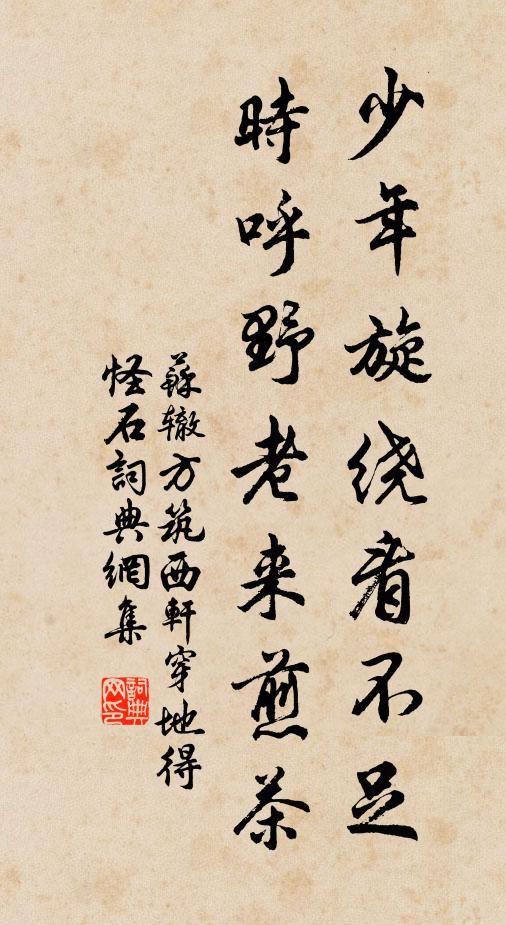 少年旋绕看不足
時呼野老来煎茶
蘇辙方筑西軒穿地得
怪石詞典網集
詞典网印